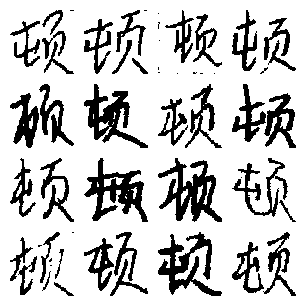 顿顿顿顿
顿顿顿顿
顿顿顿顿
顿顿顿顿